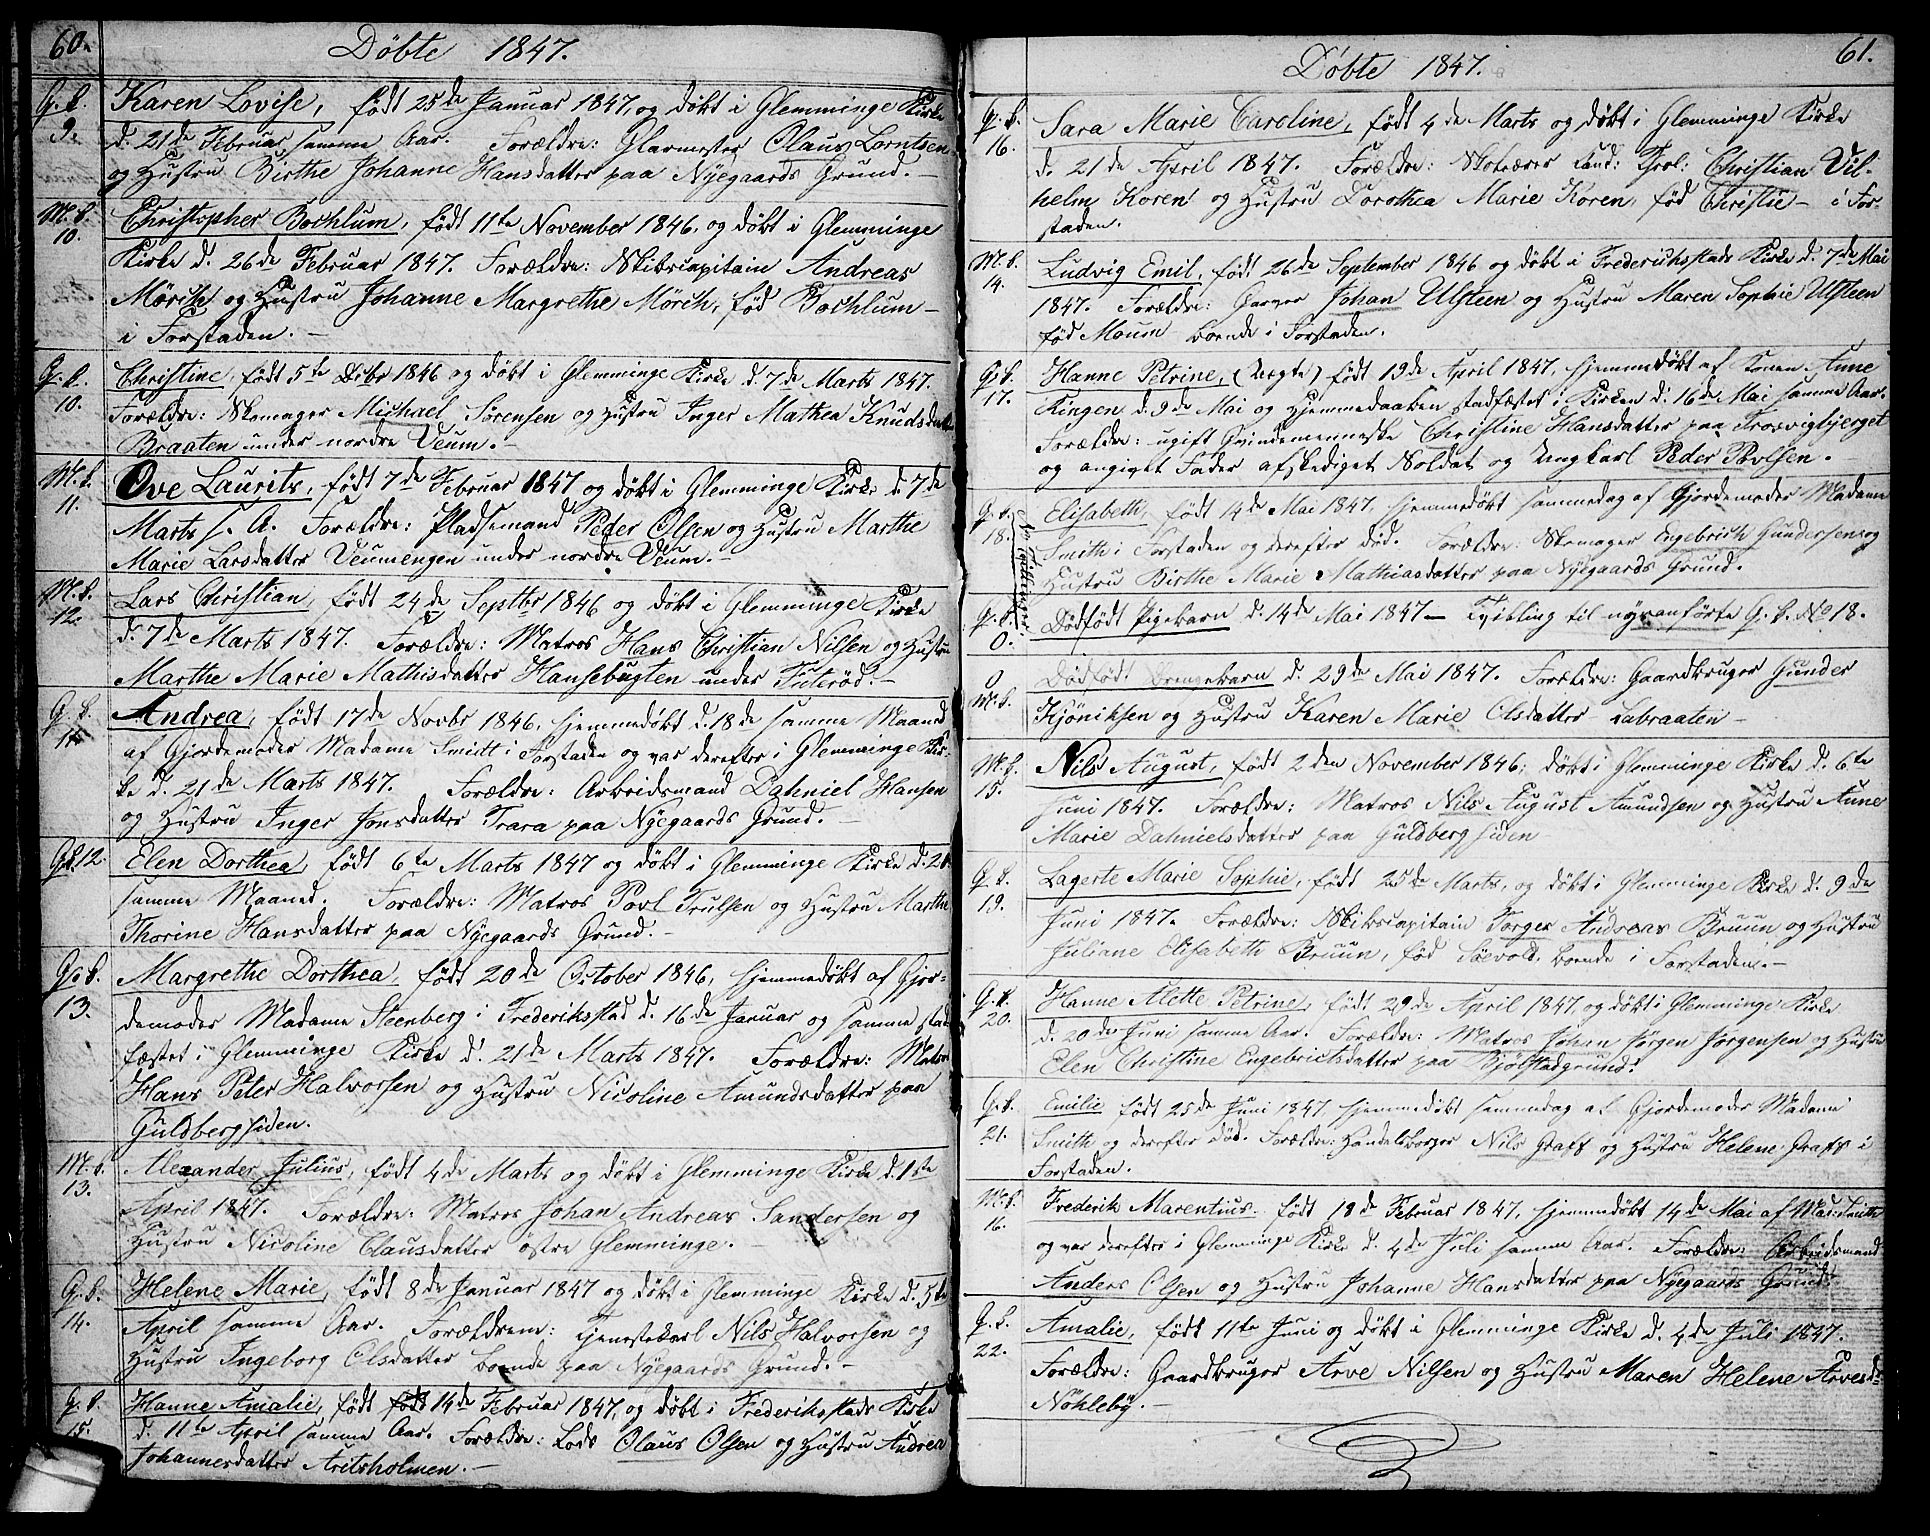 60.
Döbte 1847.
G. b. 9.
Karen Lovise, födt 25de Januar 1847, og döbt i Glemminge Kirke
d. 21de Februar samme Aar. Forældre: Glarmester Olaus Lorntsen
og Hustru Birthe Johanne Hansdatter paa Nyegaards Grund.
M. b. 10.
Christopher Bochlum, födt 11te November 1846, og döbt i Glemminge
Kirke d. 26de Februar 1847. Forældre: Skibscapitain Andreas
Mörch og Hustru Johanne Margrethe Mörch, fød Bochlum
i Forstaden.
G. b. 10.
Christine, födt 5te Decbr 1846 og döbt i Glemminge Kirke d. 7de Marts 1847.
Forældre: Skomager Michael Sörensen og Hustru Inger Mathea Knudsdatter
Braaten under nordre Veum.
M. b. 11.
Ove Laurits, födt 7de Februar 1847 og döbt i Glemminge Kirke d. 7de
Marts s. A. Forældre: Pladsemand Peder Olsen og Hustru Marthe
Marie Larsdatter Veumengen under nordre Veum.
M. b. 12.
Lars Christian, födt 24de Septbr 1846 og döbt i Glemminge Kirke
d. 7de Marts 1847. Forældre: Matros Hans Christian Nilsen og Hustru
Marthe Marie Mathisdatter Hansebugten under Titeröd.
G. b. 11.
Andrea, födt 17de Novbr 1846, hjemmedöbt d. 18de samme Maaned
af Gjordemoder Madame Smidt i Forstaden og var derefter i Glemminge Kir-
ke d. 21de Marts 1847. Forældre: Arbeidsmand Dahniel Hansen
og Hustru Inger Jonsdatter Trara paa Nyegaards Grund.
G. b. 12.
Elen Dorthea, födt 6te Marts 1847 og döbt i Glemminge Kirke d. 21
samme Maaned. Forældre: Matros Povl Trulsen og Hustru Marthe
Thorine Hansdatter paa Nyegaards Grund.
G. b. 13.
Margrethe Dorthea, födt 20de October 1846, hjemmedöbt af Gjor-
demoder Madame Steenberg i Frederikstad d. 16de Januar og samme stad-
fæstet i Glemminge Kirke d. 21de Marts 1847. Forældre: Matros
Hans Peter Halvorsen og Hustru Nicoline Amundsdatter paa
Guldbergsiden.
M. b. 13.
Alexander Julius, födt 4de Marts og döbt i Glemminge Kirke d. 1ste
April 1847. Forældre: Matros Johan Andreas Sandersen og
Hustru Nicoline Clausdatter östre Glemminge.
G. b. 14.
Helene Marie, födt 8de Januar 1847 og döbt i Glemminge Kirke d. 5te
April samme Aar. Forældrene: Tjenestekarl Nils Halvorsen og
Hustru Ingeborg Olsdatter boende paa Nyegaards Grund.
G. b. 15.
Hanne Amalie, födt födt 14de Februar 1847, og döbt i Frederikstads Kirke
d. 11te April samme Aar. Forældre: Lods Olaus Olsen og Hustru Andrea
Johannesdatter Arisholmen.
61.
Döbte 1847.
G. b. 16.
Sara Marie Caroline, födt 4de Marts og döbt i Glemminge Kirke
d. 21de April 1847. Forældre: Skolelærer Cand: Theol: Christian Vil-
helm Koren og Hustru Dorothea Marie Koren, fød Christie i For-
staden.
M. b. 14.
Ludvig Emil, födt 26de September 1846 og döbt i Frederikstads Kirke d. 7de Mai
1847. Forældre: Garver Johan Ulsteen og Hustru Maren Sophie Ulsteen
fød Moum boende i Forstaden.
G. b. 17.
Hanne Petrine, (Uægte) födt 19de April 1847, hjemmedöbt af Konen Anne
Ringen d. 9de Mai og Hjemmedaaben stadfæstet i Kirken d. 16de Mai samme Aar.
Forældre: ugift Qvindemenneske Christine Hansdatter paa Trosvigbjerget
og angivet Fader afskediget Soldat og Ungkarl Peder Povlsen.
G. b. 18.
Elisabeth, födt 14de Mai 1847, hjemmedöbt sammedag af Gjordemoder Madame
Smith i Forstaden og derefter död. Forældre: Skomager Engebrich Gundersen og
Hustru Birthe Marie Mathiasdatter paa Nyegaards Grund.
G. b. 0.
Dödfödt Pigebarn d. 14de Mai 1847 – Tvilling til nyeanförte G. b. No 18.
0 M. b.
Dödfödt Drengebarn d. 29de Mai 1847. Forældre: Gaardbruger Gunder
Kjöniksen og Hustru Karen Marie Olsdatter Labraaten
M. b. 15.
Nils August, födt 2den November 1846, döbt i Glemminge Kirke d. 6te
Juni 1847. Forældre: Matros Nils August Amundsen og Hustru Anne
Marie Dahnielsdatter paa Guldbergsiden
G. b. 19.
Lagerte Marie Sophie, födt 25de Marts, og döbt i Glemminge Kirke d. 9de
Juni 1847. Forældre: Skibscapitain Torger Andreas Bruun og Hustru
Juliane Elisabeth Bruun, fød Soevold, boende i Forstaden.
G. b. 20.
Hanne Alette Petrine, födt 29de April 1847, og döbt i Glemminge Kirke
d. 20de Juni samme Aar. Forældre: Matros Johan Jörgen Jörgensen og Hustru
Elen Christine Engebrichsdatter paa Bjölstadgrund.
G. b. 21.
Emilie födt 25de Juni 1847, hjemmedöbt sammedag af Gjordemoder Madame
Smith og derefter död. Forældre: Handelsborger Nils Graff og Hustru Helene Graff i
Forstaden.
M. b. 16.
Frederik Marentius, födt 18de Februar 1847, hjemmedöbt 14de Mai af Mad: Smith
og var derefter i Glemminge Kirke d. 4de Juli samme Aar. Forældre: Arbeidsmand
Anders Olsen og Hustru Johanne Hansdatter paa Nyegaards Grund.
G. b. 22.
Amalie, födt 11te Juni og döbt i Glemminge Kirke d. 4de Juli 1847.
Forældre: Gaardbruger Arve Nilsen og Hustru Maren Helene Arvesd:
Nöhleby.